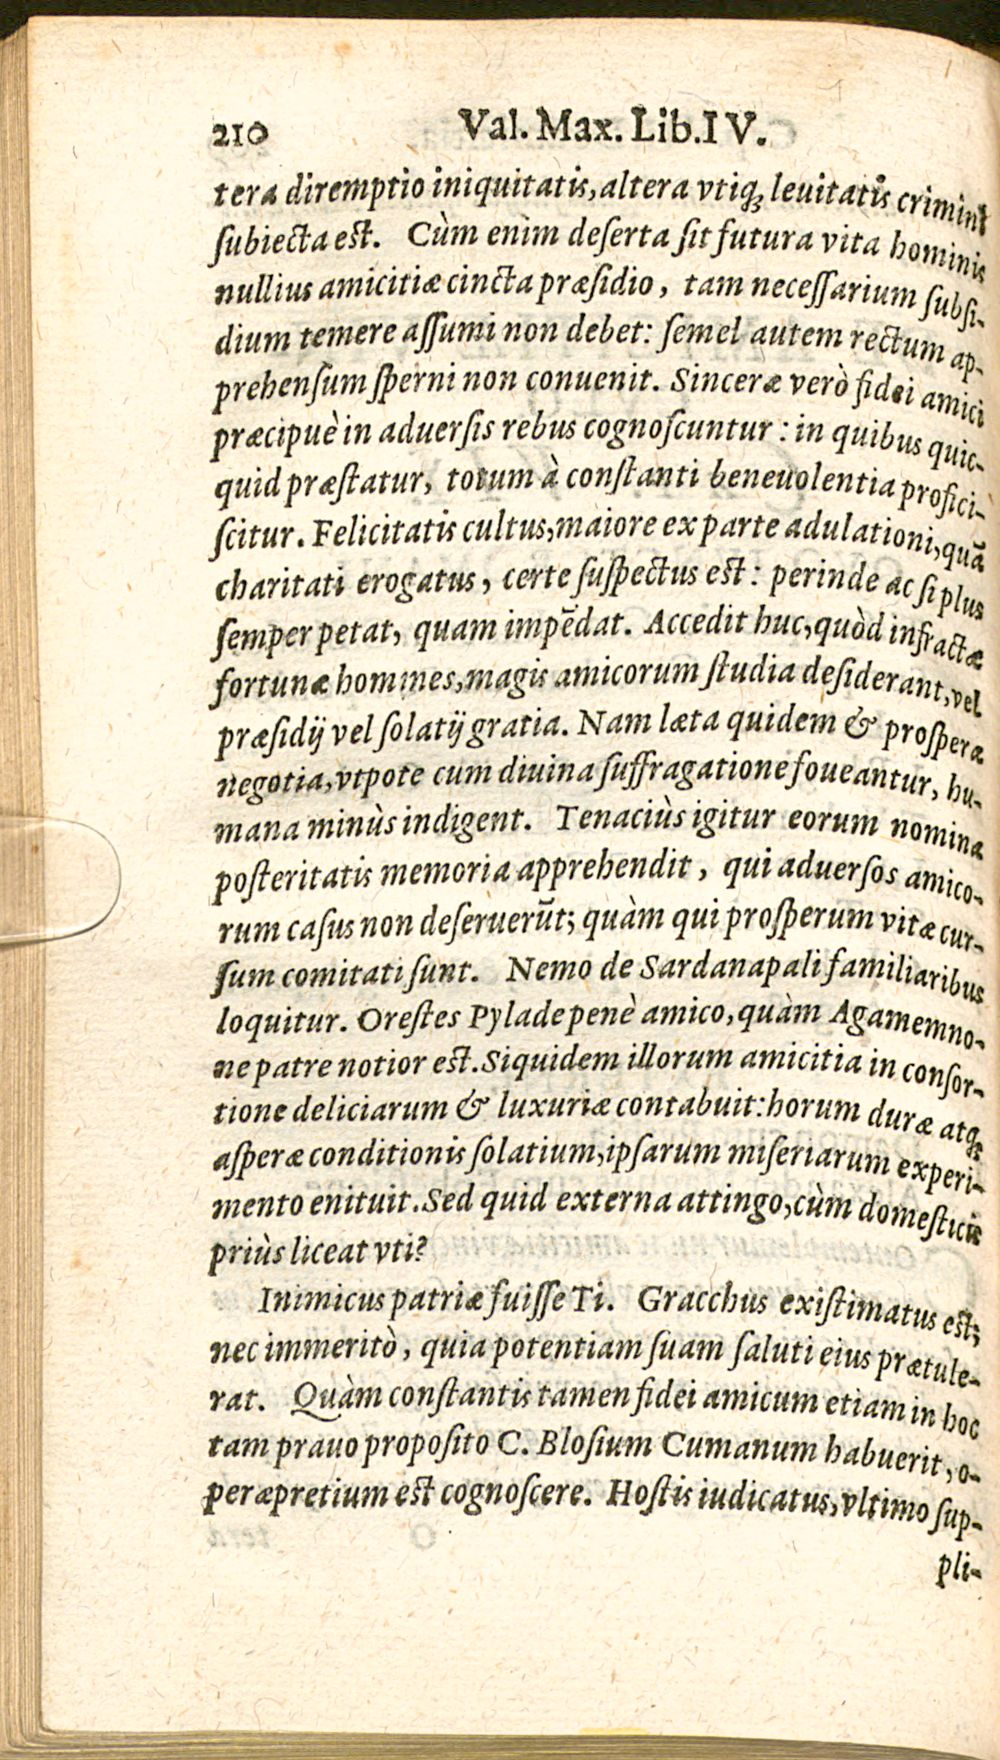 210 Val. Max. Lib. IV.
tera diremptio iniquitatis, altera vtiq; leuitatis crimini
ſubiecta eſt. Cùm enim deſerta ſit futura vita hominis
nullius amicitiæ cincta præſidio, tam neceſſarium ſubſi-
dium temere aſſumi non debet: ſemel autem rectum ap-
prehenſum ſperni non conuenit. Sinceræ verò fidei amici
præcipuè in aduerſis rebus cognoſcuntur: in quibus quic-
quid præſtatur, totum à conſtanti beneuolentia profici-
ſcitur. Felicitatis cultus, maiore ex parte adulationi, quã
charitati erogatus, certe ſuſpectus eſt: perinde ac ſi plus
ſemper petat, quam impẽdat. Accedit huc, quòd infractæ
fortunæ hommes, magis amicorum ſtudia deſiderant, vel
præſidij vel ſolatij gratia. Nam læta quidem & proſpera
negotia, vtpote cum diuina ſuffragatione foueantur, hu-
mana minùs indigent. Tenaciùs igitur eorum nomina
poſteritatis memoria apprehendit, qui aduerſos amico-
rum caſus non deſeruerũt; quàm qui proſperum vitæ cur-
ſum comitati ſunt. Nemo de Sardanapali familiaribus
loquitur. Oreſtes Pylade penè amico, quàm Agamemno-
ne patre notior eſt. Siquidem illorum amicitia in conſor-
tione deliciarum & luxuriæ contabuit: horum duræ atq;
aſperæ conditionis ſolatium, ipſarum miſeriarum experi-
mento enituit. Sed quid externa attingo, cùm domeſticis
priùs liceat vti?
Inimicus patriæ fuiſſe Ti. Gracchus exiſtimatus eſt;
nec immeritò, quia potentiam ſuam ſaluti eius prætule-
rat. Quàm conſtantis tamen fidei amicum etiam in hoc
tam prauo propoſito C. Bloſium Cumanum habuerit, o-
peræpretium eſt cognoſcere. Hoſtis iudicatus, vltimo ſup-
pli-